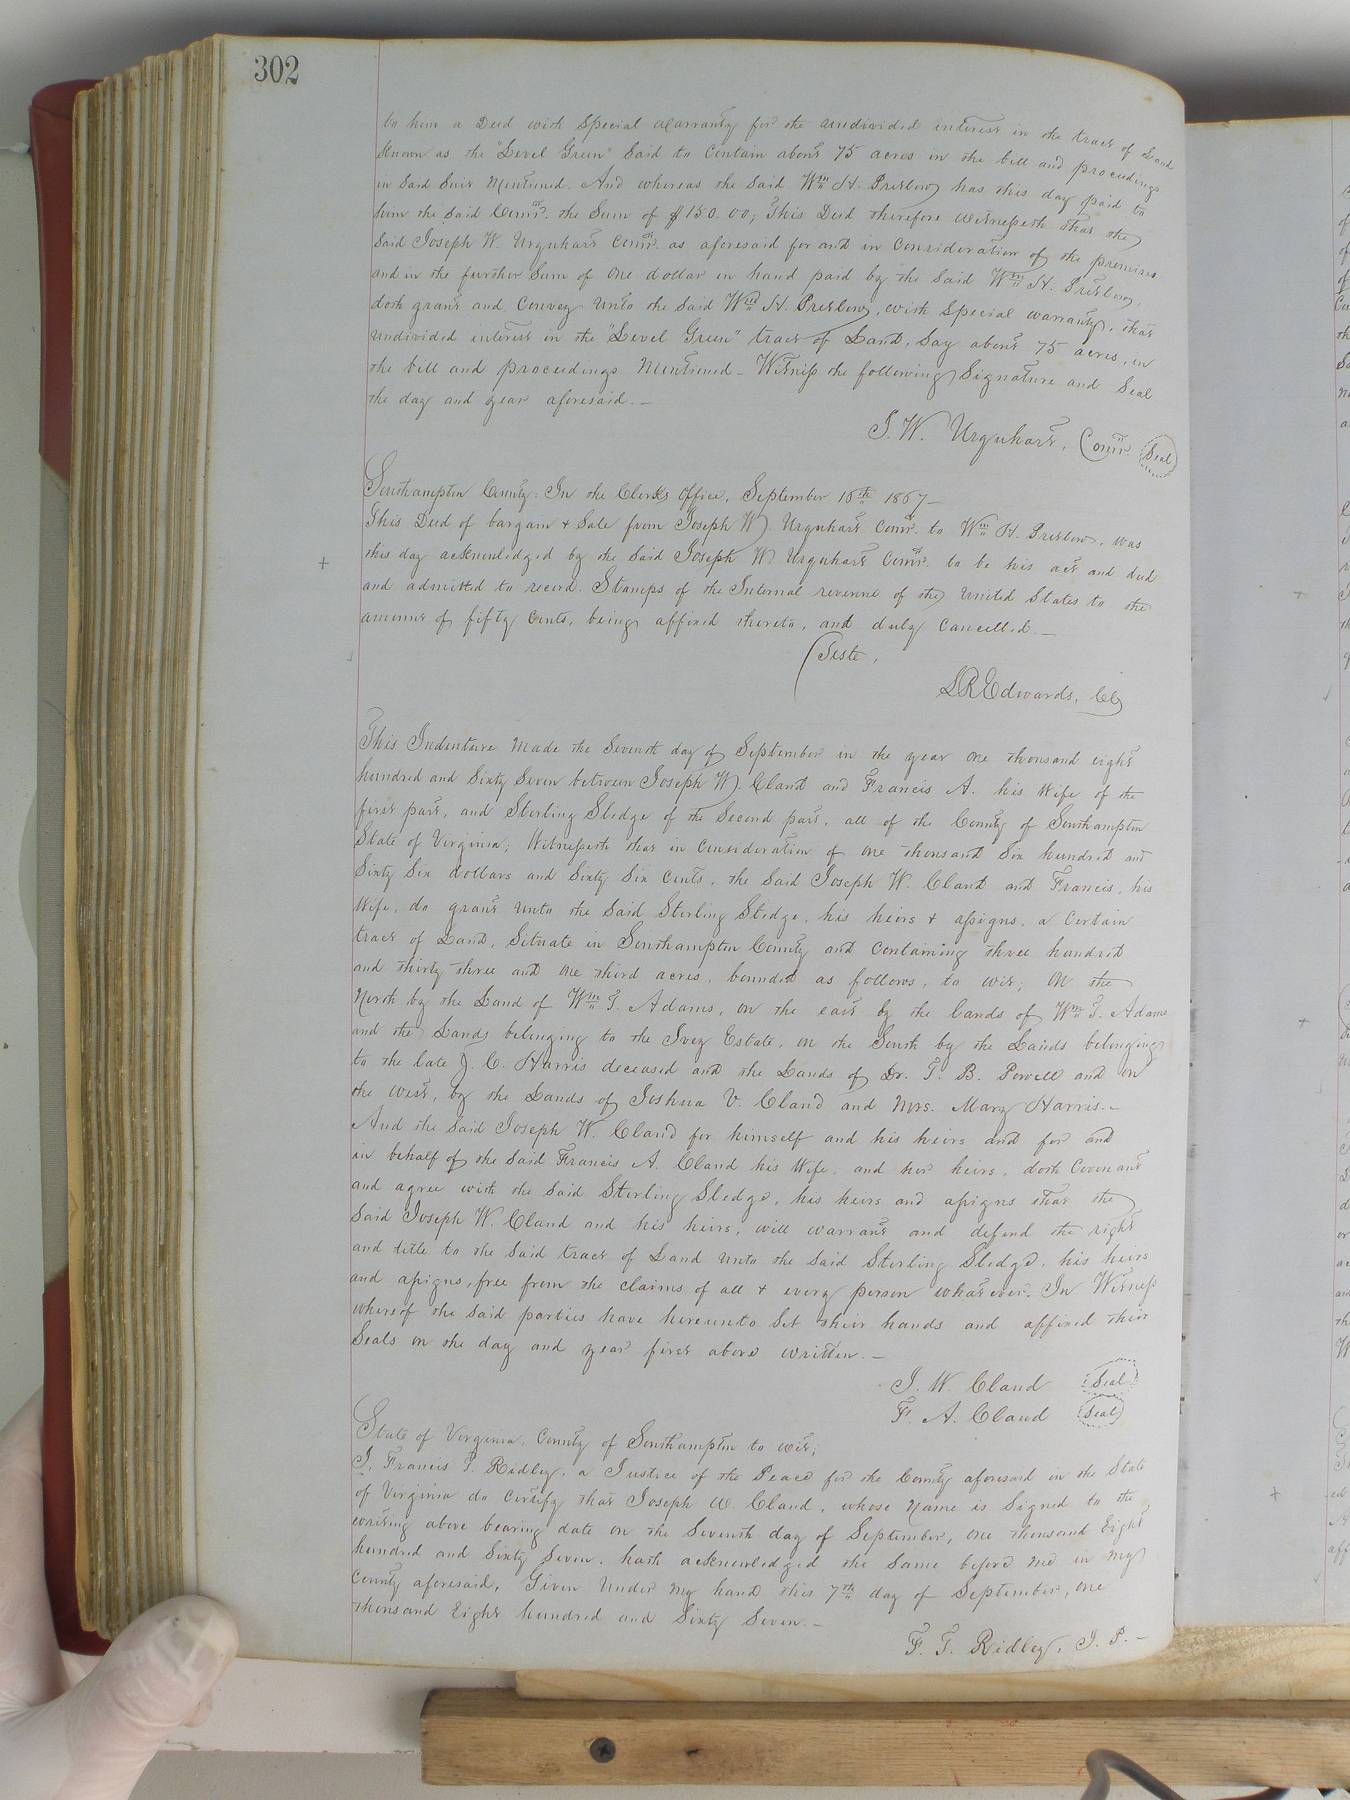 302
to him a Deed with Special Warranty for the undivided interest in the tract of Land
Known as the "Level Green" Said to Contain about 75 acres in the bill and proceedings
in Said Suit Mentioned. And whereas the Said Wm. H. Pretlow has this day paid to
him the Said Comr. the Sum of $150.00; This Deed therefore Witnesseth that the
Said Joseph W. Urquhart Comr. as aforesaid for and in Consideration of the premises
and in the further Sum of One dollar in hand paid by the Said Wm. H. Pretlow,
doth grant and Convey Unto the Said Wm. H. Pretlow, with Special warranty, that
undivided interest in the "Level Green" tract of Land, Say about 75 acres, in
the bill and proceedings Mentioned - Witness the following Signature and Seal
the day and year aforesaid. -
J. W. Urquhart, Comr. Seal
Southampton County: In the Clerks Office, September 16th 1867 -
This Deed of bargain & Sale from Joseph W. Urquhart Comr. to Wm. H. Pretlow, was
this day acknowledged by the Said Joseph W. Urquhart Comr. to be his act and deed
and admitted to record. Stamps of the Internal revenue of the United States to the
amount of fifty Cents, being affixed thereto, and duly Cancelled. -
Teste,
L R Edwards, Clk
This Indenture Made the Seventh day of September in the year One thousand eight
hundred and Sixty Seven between Joseph W. Claud and Francis A. his Wife of the
first part, and Sterling Sledge of the Second part, all of the County of Southampton
State of Virginia; Witnesseth that in Consideration of One thousand Six hundred and
Sixty Six dollars and Sixty Six Cents, the Said Joseph W. Claud and Francis, his
Wife, do grant Unto the Said Sterling Sledge, his heirs & assigns, a Certain
tract of Land, Situate in Southampton County and Containing three hundred
and thirty three and One third acres, bounded as follows, to wit; On the
North by the Land of Wm. T. Adams, on the east by the lands of Wm. T. Adams
and the Lands belonging to the Ivey Estate, on the South by the Lands belonging
to the late J. C. Harris deceased and the Lands of Dr. T. B. Powell and on
the west, by the Lands of Joshua V. Claud and Mrs. Mary Harris. -
And the Said Joseph W. Claud for himself and his heirs and for and
in behalf of the Said Francis A. Claud his Wife, and her heirs, doth Covenant
and agree with the Said Sterling Sledge, his heirs and assigns that the
Said Joseph W. Claud and his heirs, will warrant and defend the right
and title to the Said tract of Land Unto the Said Sterling Sledge, his heirs
and assigns, free from the claims of all & every person whatever. In Witness
whereof the Said parties have hereunto Set their hands and affixed their
Seals on the day and year first above written. -
J. W. Claud Seal
F. A. Claud Seal
State of Virginia, County of Southampton to wit;
I, Francis T. Ridley, a Justice of the Peace for the County aforesaid in the State
of Virginia do Certify that Joseph W. Claud, whose Name is Signed to the
writing above bearing date on the Seventh day of September, One thousand Eight
hundred and Sixty Seven, hath acknowledged the Same before Me in My
County aforesaid, Given Under My hand this 7th day of September, One
thousand Eight hundred and Sixty Seven. -
F. T. Ridley, J. P. -